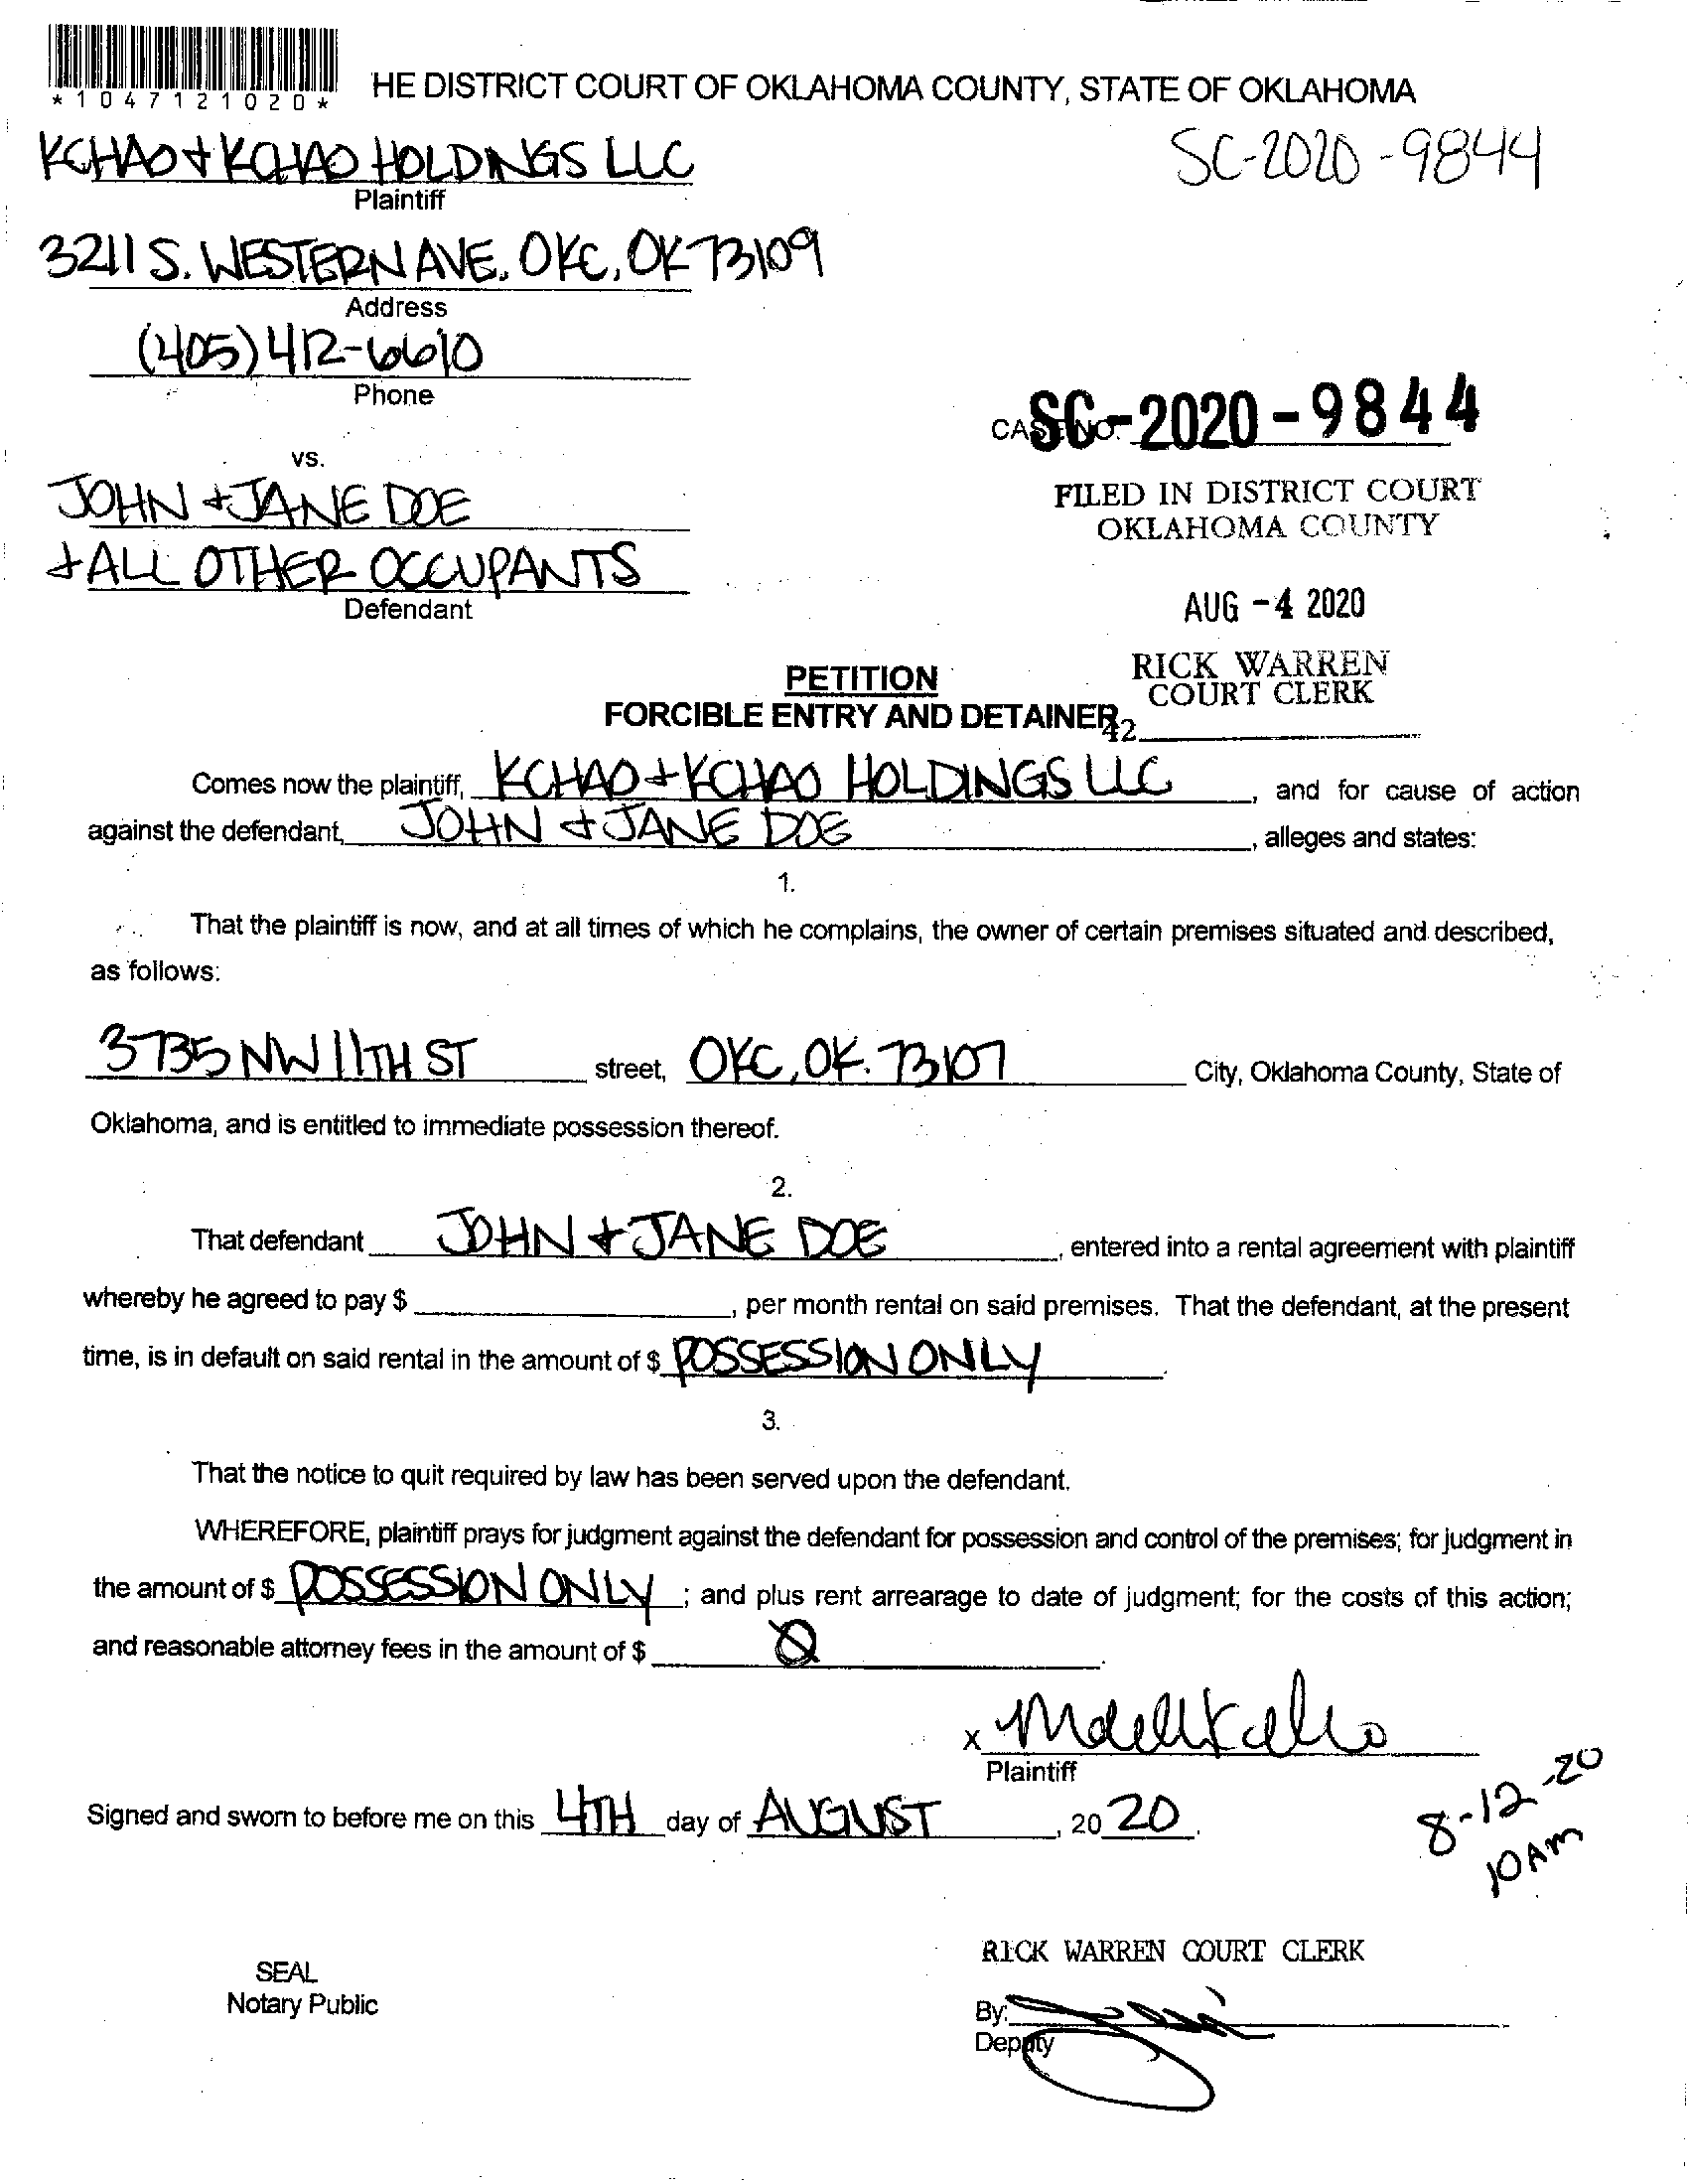 *1047121020*
HE DISTRICT COURT OF OKLAHOMA COUNTY, STATE OF OKLAHOMA
KCHAO + KCHAO HOLDINGS LLC
SC-2020-9844
Plaintiff
3211 S. WESTERN AVE. OKC, OK 73109
Address
(405) 412-6610
Phone
CASE NO. SC-2020-9844
vs.
FILED IN DISTRICT COURT
OKLAHOMA COUNTY
JOHN + JANE DOE
+ ALL OTHER OCCUPANTS
Defendant
AUG -4 2020
RICK WARREN
COURT CLERK
PETITION
FORCIBLE ENTRY AND DETAINER
42
Comes now the plaintiff, KCHAO + KCHAO HOLDINGS LLC, and for cause of action
against the defendant, JOHN + JANE DOE, alleges and states:
1.
That the plaintiff is now, and at all times of which he complains, the owner of certain premises situated and described,
as follows:
3735 NW 11TH ST street, OKC, OK. 73107 City, Oklahoma County, State of
Oklahoma, and is entitled to immediate possession thereof.
2.
That defendant JOHN + JANE DOE, entered into a rental agreement with plaintiff
whereby he agreed to pay $ , per month rental on said premises. That the defendant, at the present
time, is in default on said rental in the amount of $ POSSESSION ONLY.
3.
That the notice to quit required by law has been served upon the defendant.
WHEREFORE, plaintiff prays for judgment against the defendant for possession and control of the premises; for judgment in
the amount of $ POSSESSION ONLY; and plus rent arrearage to date of judgment; for the costs of this action;
and reasonable attorney fees in the amount of $ Ø.
x
Plaintiff
Signed and sworn to before me on this 4TH day of AUGUST, 20 20.
8-12-20
10AM
RICK WARREN COURT CLERK
SEAL
Notary Public
By:
Deputy